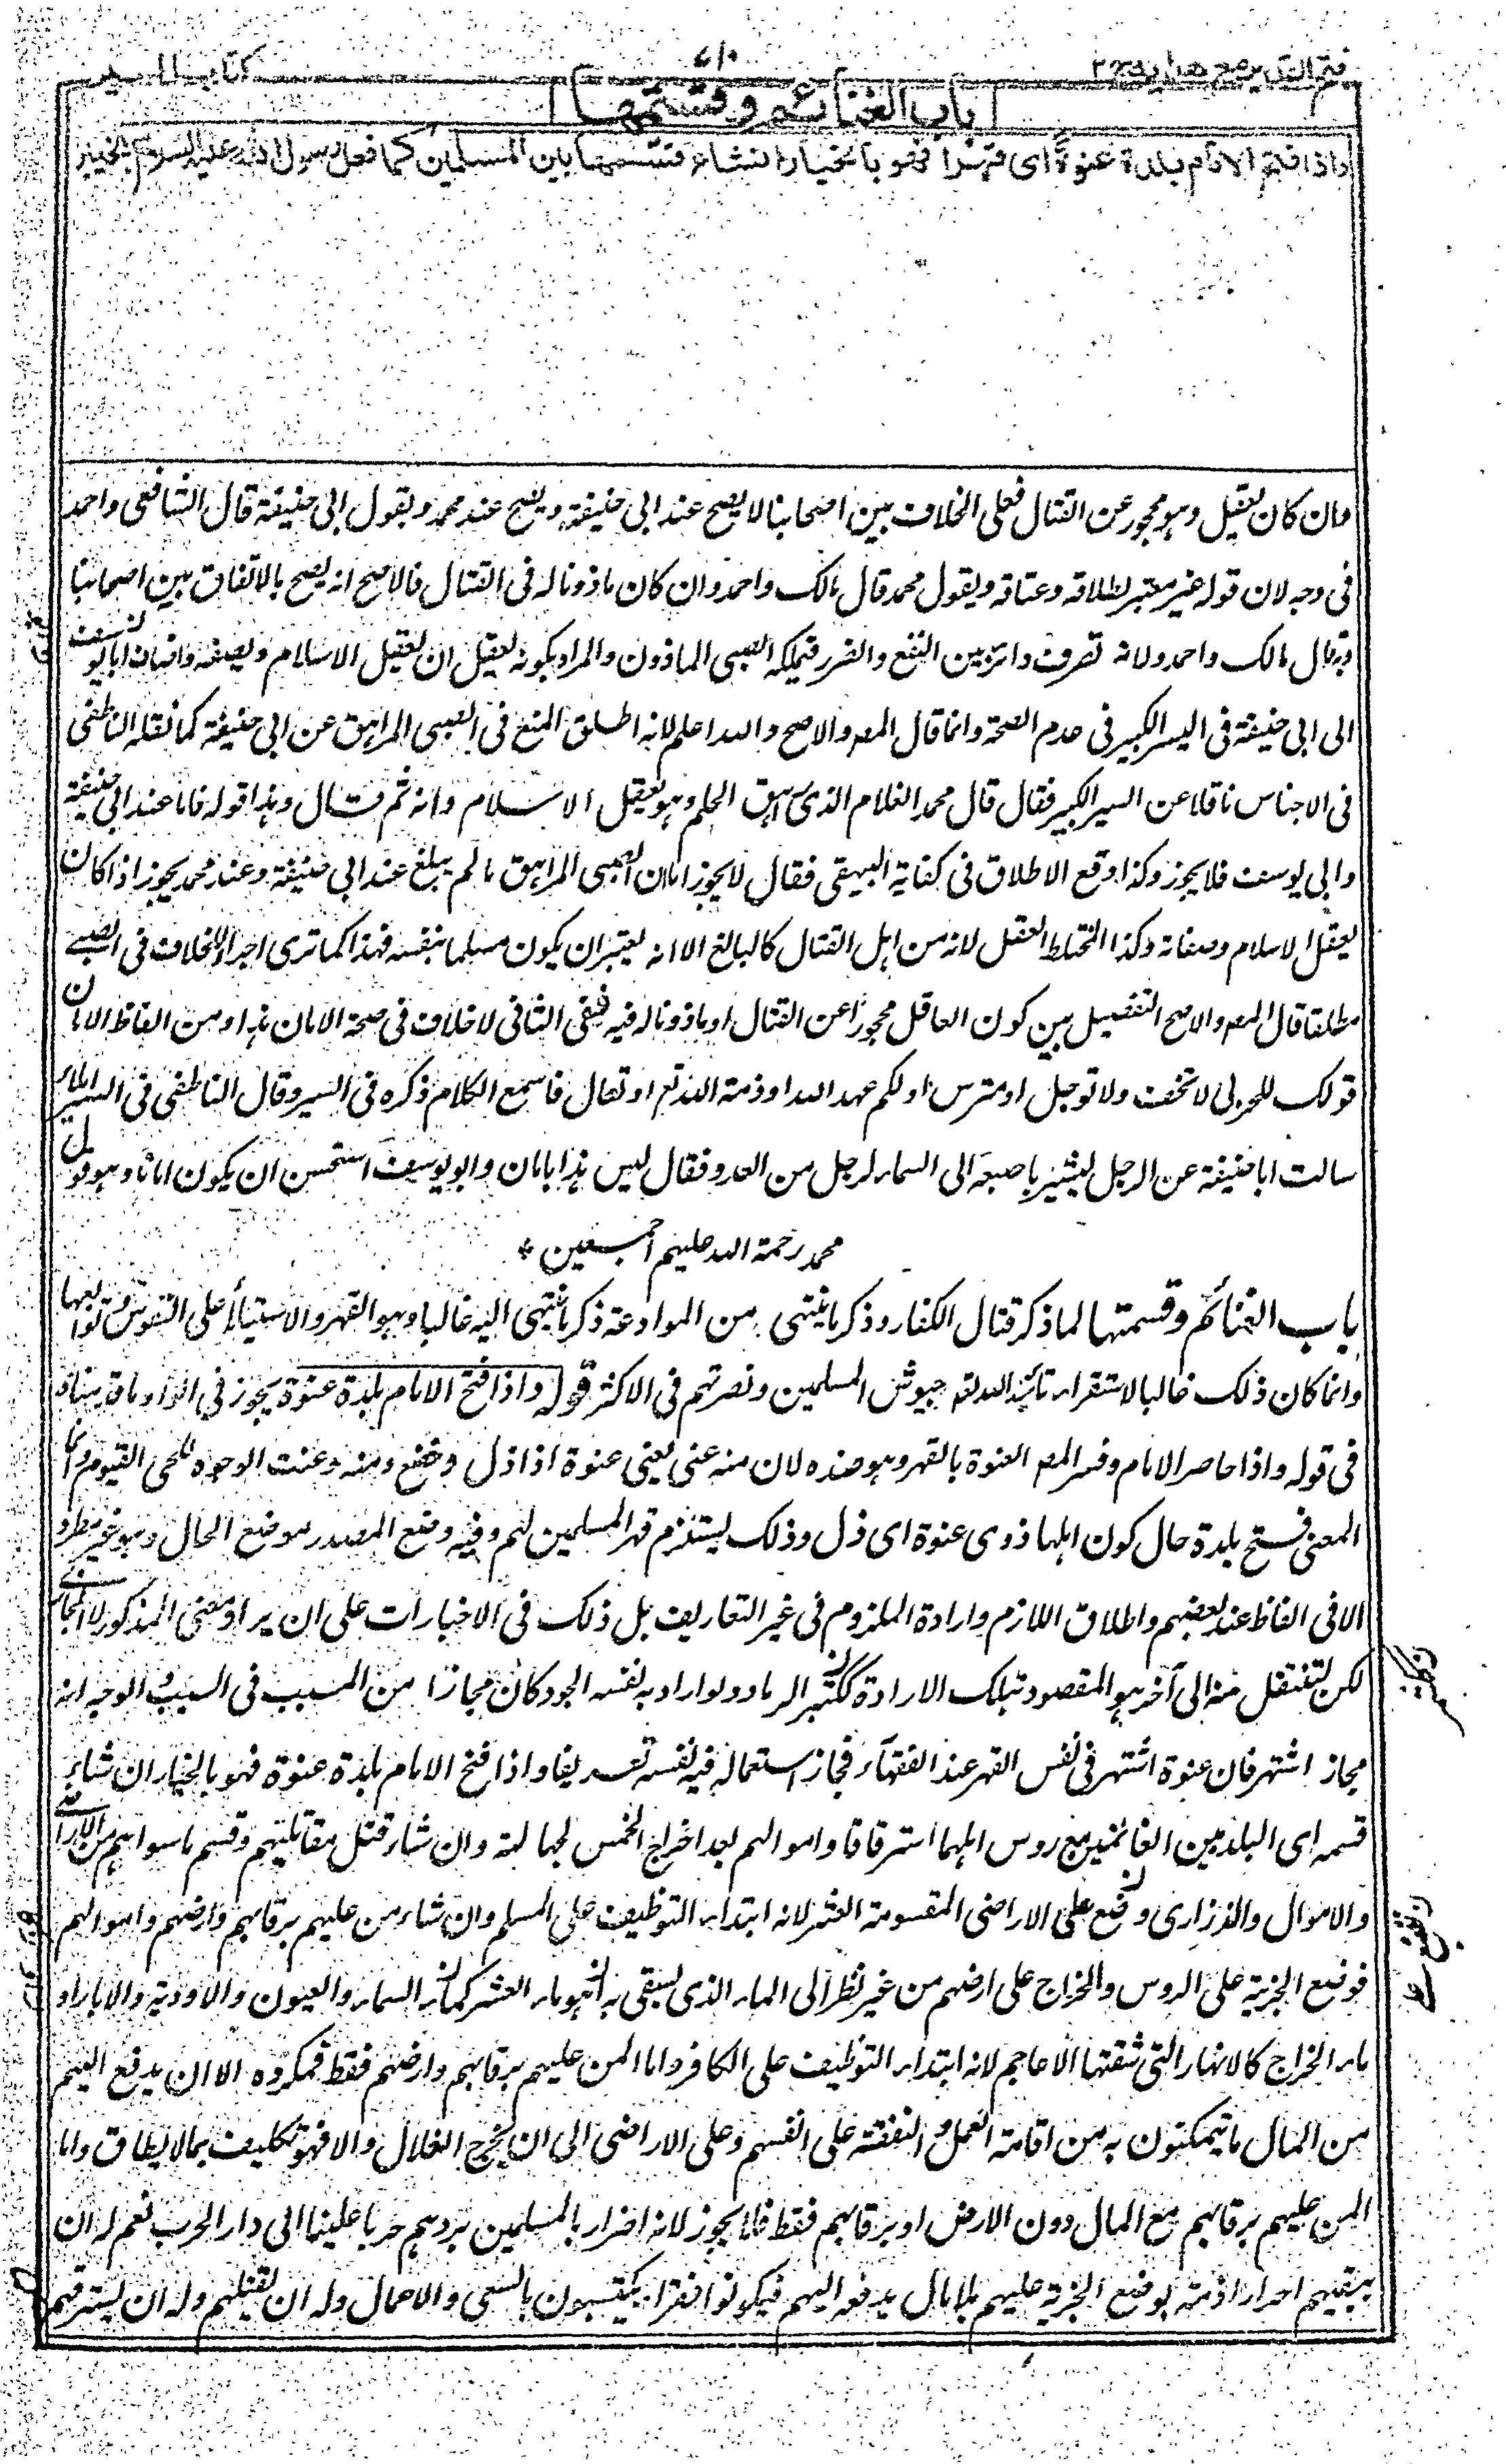 فتح القدير مع هدايه ج٢
٧١٠
كتاب السير
باب الغنائم وقسمتها
واذا فتح الامام بلدة عنوة اى قهرا فهو بالخيار ان شاء قسمها بين المسلمين كما فعل رسول الله عليه السلام بخيبر
وان كان يعقل وهو محجور عن القتال فعلى الخلاف بين اصحابنا لا يصح عند ابى حنيفة ويصح عند محمد وبقول ابى حنيفة قال الشافعى واحمد
فى وجه لان قوله غير معتبر لطلاقه وعتاقه وبقول محمد قال مالك واحمد وان كان ماذونا له فى القتال فالاصح انه يصح بالاتفاق بين اصحابنا
وبه قال مالك واحمد ولانه تصرف دائر بين النفع والضرر فيملكه الصبى الماذون والمراد بكونه يعقل ان يعقل الاسلام ويصفه واضاف ابا يوسف
الى ابى حنيفة فى السير الكبير فى عدم الصحة وانما قال المصـ والاصح والله اعلم لانه اطلق المنع فى الصبى المراهق عن ابى حنيفة كما نقله الناطفى
فى الاجناس ناقلا عن السير الكبير فقال قال محمد الغلام الذى راهق الحلم وهو يعقل الاسلام وانه ثم قال وهذا قوله فاما عند ابى حنيفة
وابى يوسف فلا يجوز وكذا وقع الاطلاق فى كفاية البيهقى فقال لا يجوز امان الصبى المراهق ما لم يبلغ عند ابى حنيفة وعند محمد يجوز اذا كان
يعقل الاسلام وصفاته وكذا المختلط العقل لانه من اهل القتال كالبالغ الا انه يعتبر ان يكون مسلما بنفسه فهذا كما ترى اجراء الخلاف فى الصبى
مطلقا قال المصـ والاصح التفصيل بين كون العاقل محجورا عن القتال او ماذونا له فيه ففى الثانى لا خلاف فى صحة الامان هذا ومن الفاظ الامان
قولك للحربى لا تخف ولا توجل او مترس او لكم عهد الله او ذمة الله تع او تعال فاسمع الكلام ذكره فى السير وقال الناطفى فى السير املاء
سالت ابا حنيفة عن الرجل يشير باصبعه الى السماء لرجل من العدو فقال ليس هذا بامان وابو يوسف استحسن ان يكون امانا وهو قول
محمد رحمة الله عليهم اجمعين *
باب الغنائم وقسمتها لما ذكر قتال الكفار وذكر ما ينتهى من الموادعة ذكر ما ينتهى اليه غالبا وهو القهر والاستيلاء على النفوس وتوابعها
وانما كان ذلك غالبا لاستقراء تائيد الله تعـ جيوش المسلمين ونصرتهم فى الاكثر قوله واذا فتح الامام بلدة عنوة يجوز فى الواو ما قدمناه
فى قوله واذا حاصر الامام وفسر المصـ العنوة بالقهر وهو ضده لان منه عنى يعنى عنوة اذا ذل وخضع ومنه وعنت الوجوه للحى القيوم وانما
المعنى فتح بلدة حال كون اهلها ذوى عنوة اى ذل وذلك يستلزم قهر المسلمين لهم وفيه وضع المصدر موضع الحال وهو غير مطرد
الا فى الفاظ عند بعضهم واطلاق اللازم وارادة الملزوم فى غير التعاريف بل ذلك فى الاخبارات على ان يراد معنى المذكور لا المجازى
لكن لتنتقل منه الى آخر هو المقصود بتلك الارادة ككثير الرماد ولو اراد به نفس الجود كان مجازا من المسبب فى السبب والوجه انه
مجاز اشتهر فان عنوة اشتهر فى نفس القهر عند الفقهاء فجاز استعماله فيه نفسه تعريفا واذا فتح الامام بلدة عنوة فهو بالخيار ان شاء
قسمه اى البلد بين الغانمين مع روس اهلها استرقاقا واموالهم بعد اخراج الخمس لجهاته وان شاء قتل مقاتليهم وقسم ما سواهم من الاراضى
والاموال والذرارى ويضع على الاراضى المقسومة العشر لانه ابتداء التوظيف على المسلم وان شاء من عليهم برقابهم وارضهم واموالهم
فوضع الجزية على الروس والخراج على ارضهم من غير نظر الى الماء الذى يسقى به أهو ماء العشر كماء السماء والعيون والاودية والابار او
ماء الخراج كالانهار التى شقتها الاعاجم لانه ابتداء التوظيف على الكافر واما المن عليهم برقابهم وارضهم فقط فمكروه الا ان يدفع اليهم
من المال ما يتمكنون به من اقامة العمل والنفقة على انفسهم وعلى الاراضى الى ان يخرج الغلال والا فهو تكليف بما لا يطاق واما
المن عليهم برقابهم مع المال دون الارض او برقابهم فقط فلا يجوز لانه اضرار بالمسلمين بردهم حربا علينا الى دار الحرب نعم له ان
يبقيهم احرارا ذمة بوضع الجزية عليهم بلا مال يدفعه اليهم فيكونوا فقراء يكتسبون بالسعى والاعمال وله ان يقتلهم وله ان يسترقهم